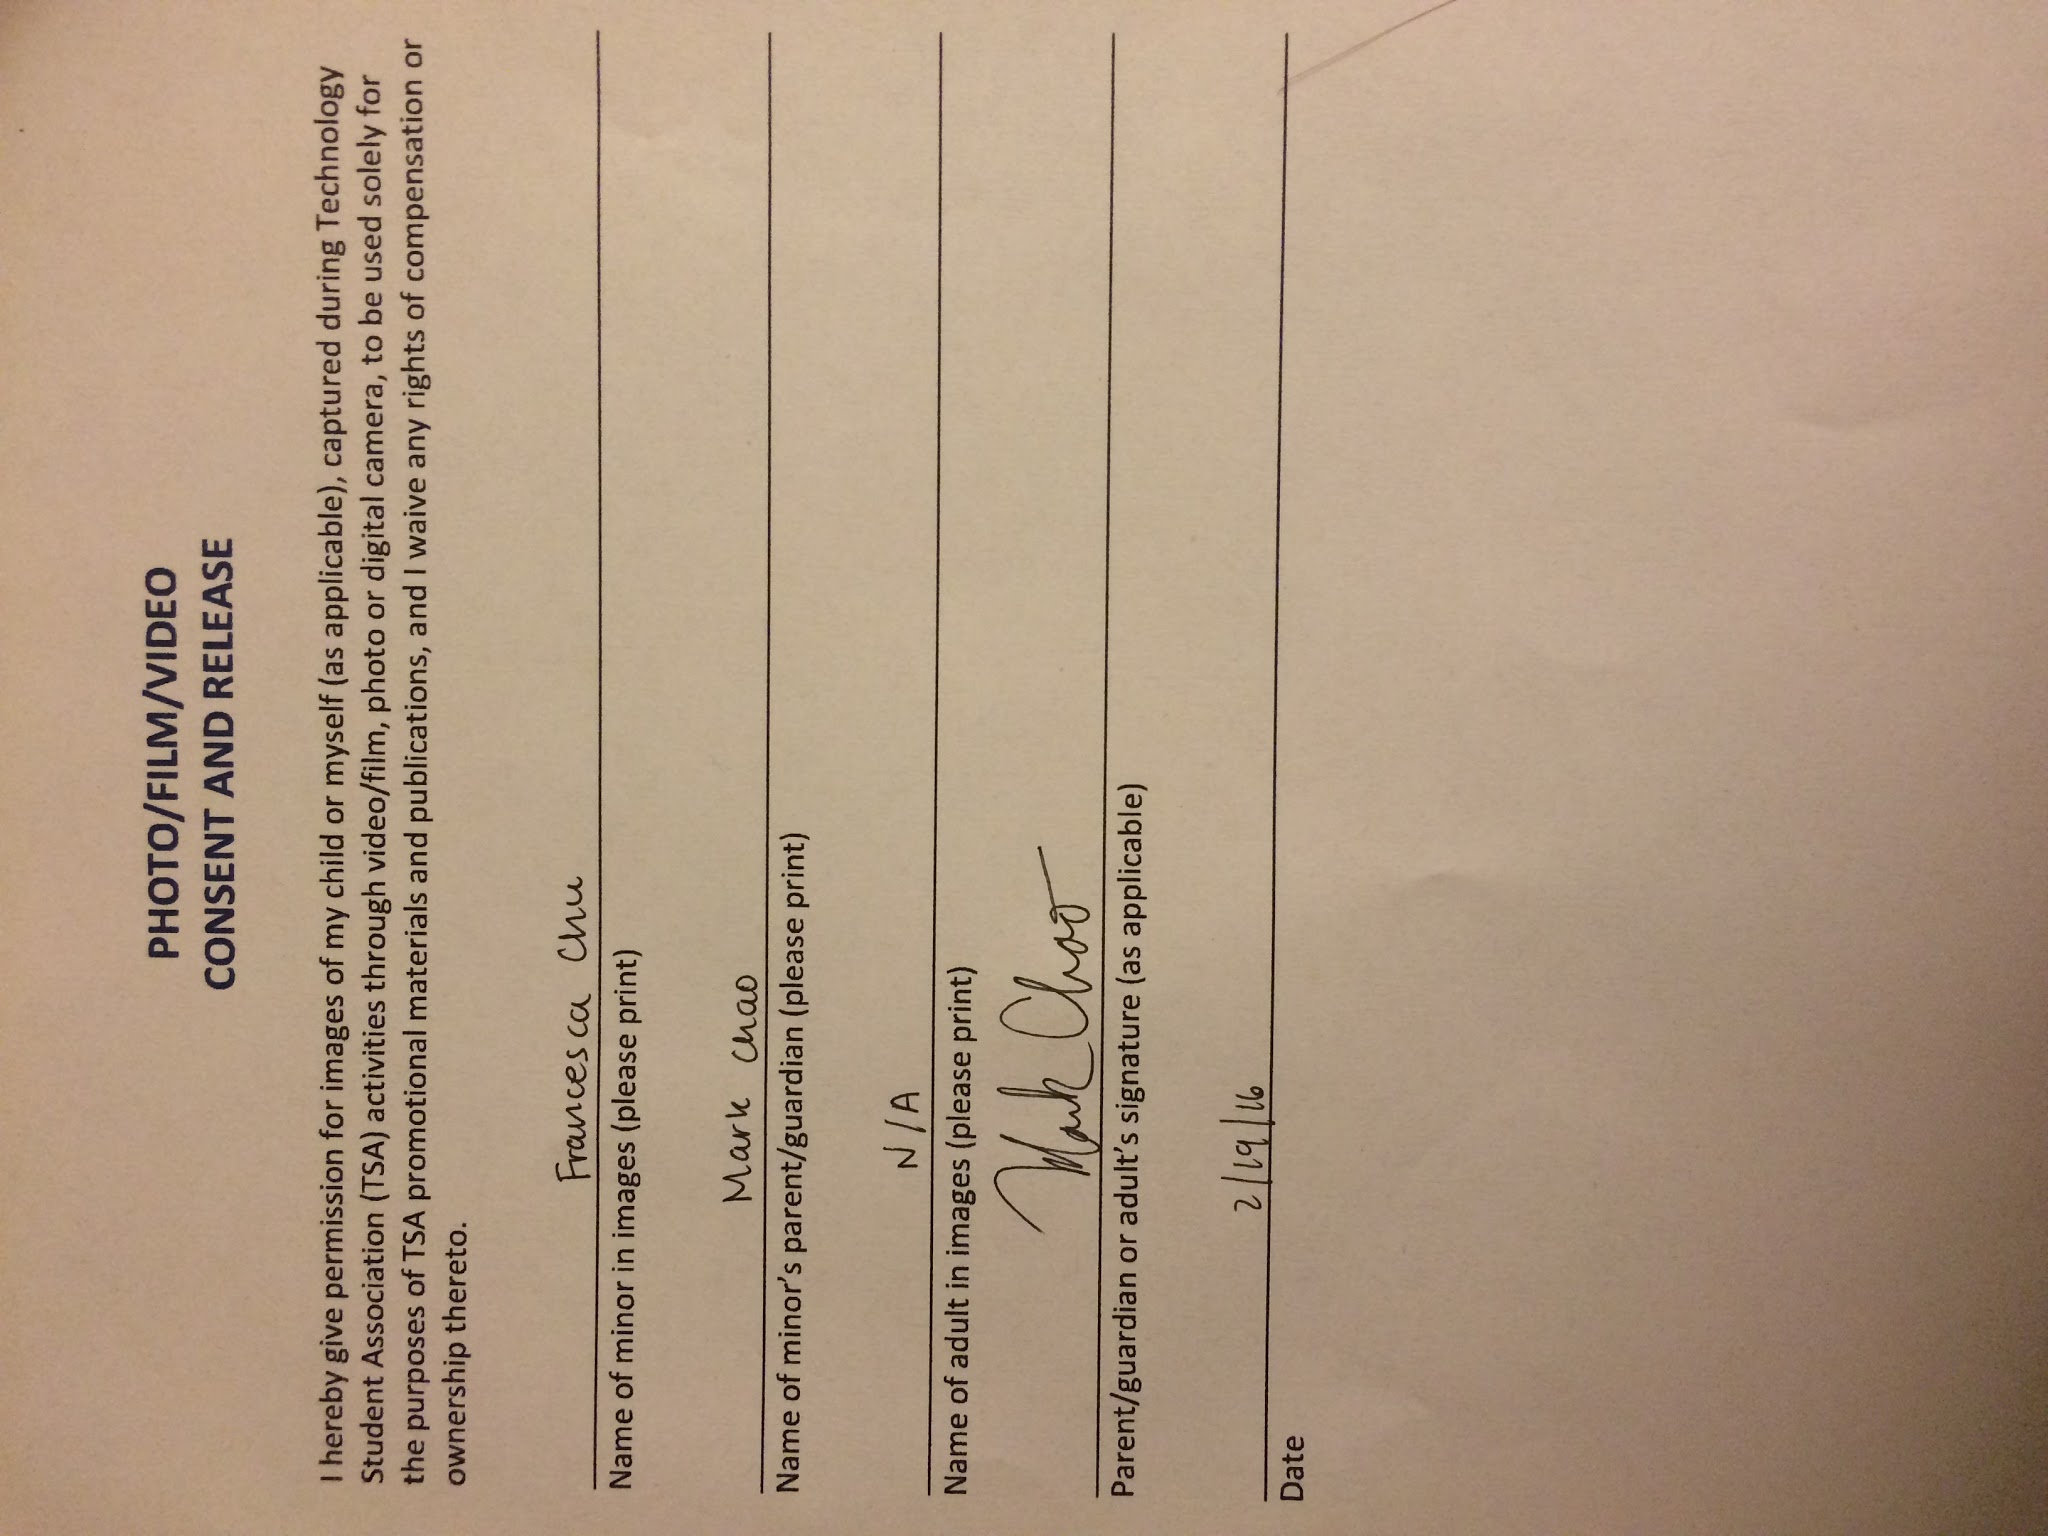 PHOTO/FILM/VIDEO
CONSENT AND RELEASE
I hereby give permission for images of my child or myself (as applicable), captured during Technology
Student Association (TSA) activities through video/film, photo or digital camera, to be used solely for
the purposes of TSA promotional materials and publications, and I waive any rights of compensation or
ownership thereto.
Francesca Chu
Name of minor in images (please print)
Mark Chao
Name of minor's parent/guardian (please print)
N/A
Name of adult in images (please print)
Mark Chao
Parent/guardian or adult's signature (as applicable)
2/19/16
Date